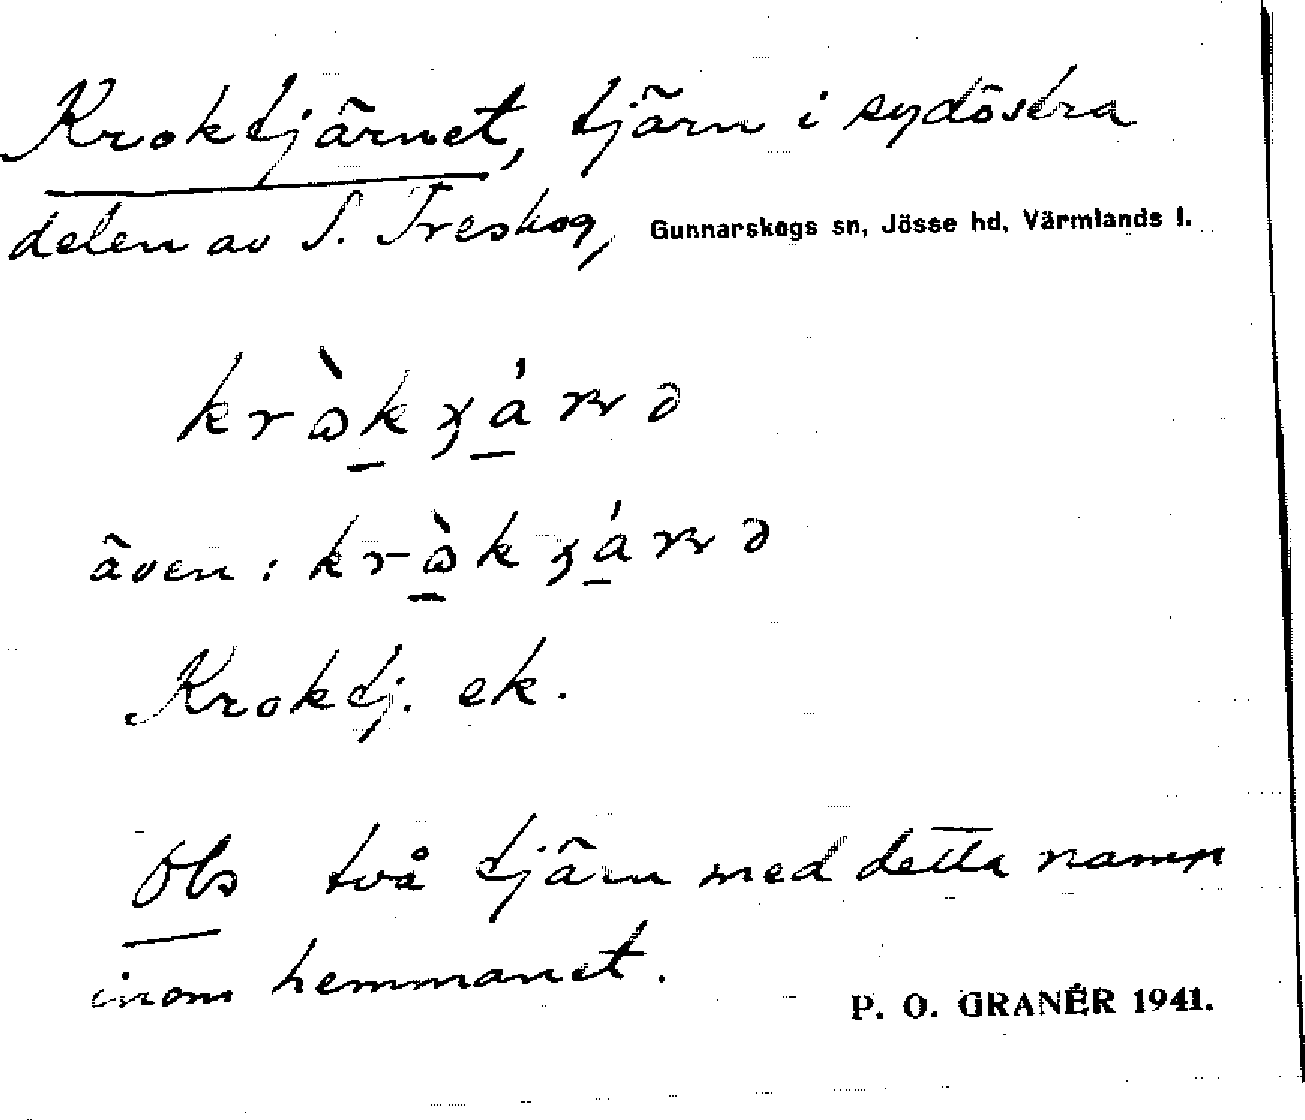 Kroktjärnet, tjärn i sydöstra
delen av S. Treskog, Gunnarskogs sn, Jösse hd, Värmlands l.
även:
Kroktj. ek.
Obs två tjärn med detta namn
inom hemmanet.
P. O. GRANÉR 1941.